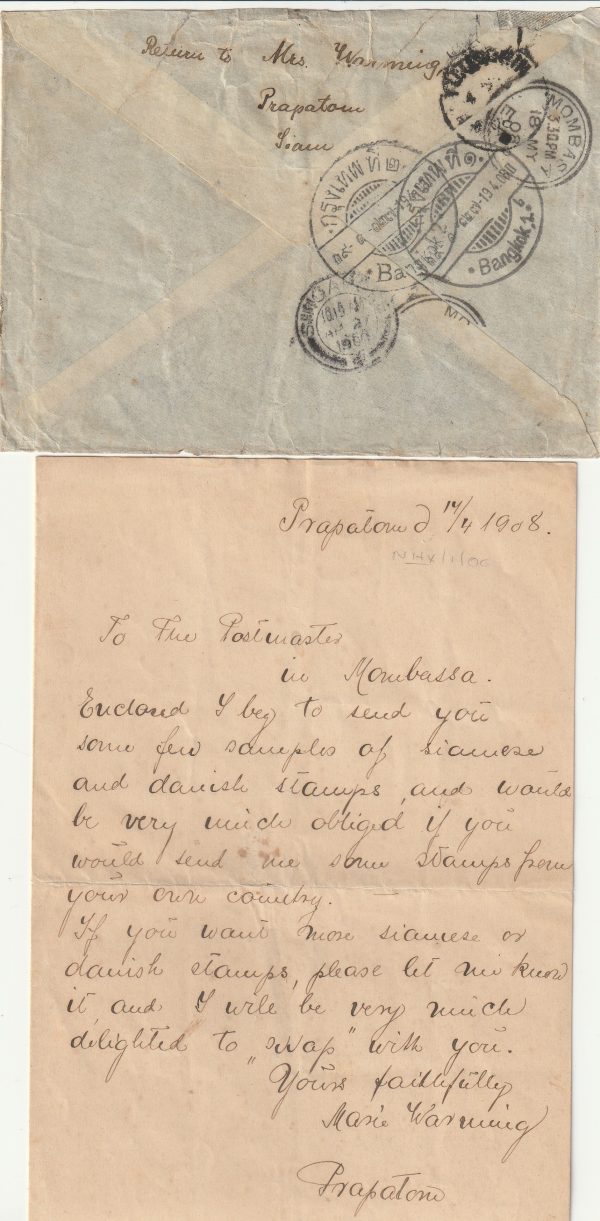 Return to Mrs. Warming
Prapatom
Siam
MOMBASA
3.30 PM
18 MY
08
Bangkok 1
Bangkok 2
SINGAP
MO
Prapatom d 14/4 1908.
To The Postmaster
in Mombassa.
Enclosed I beg to send you
some few samples of siamese
and danish stamps, and would
be very much obliged if you
would send me some stamps from
your own country.
If you want more siamese or
danish stamps, please let me know
it, and I will be very much
delighted to „swap" with you.
Yours faithfully
Marie Warming
Prapatom